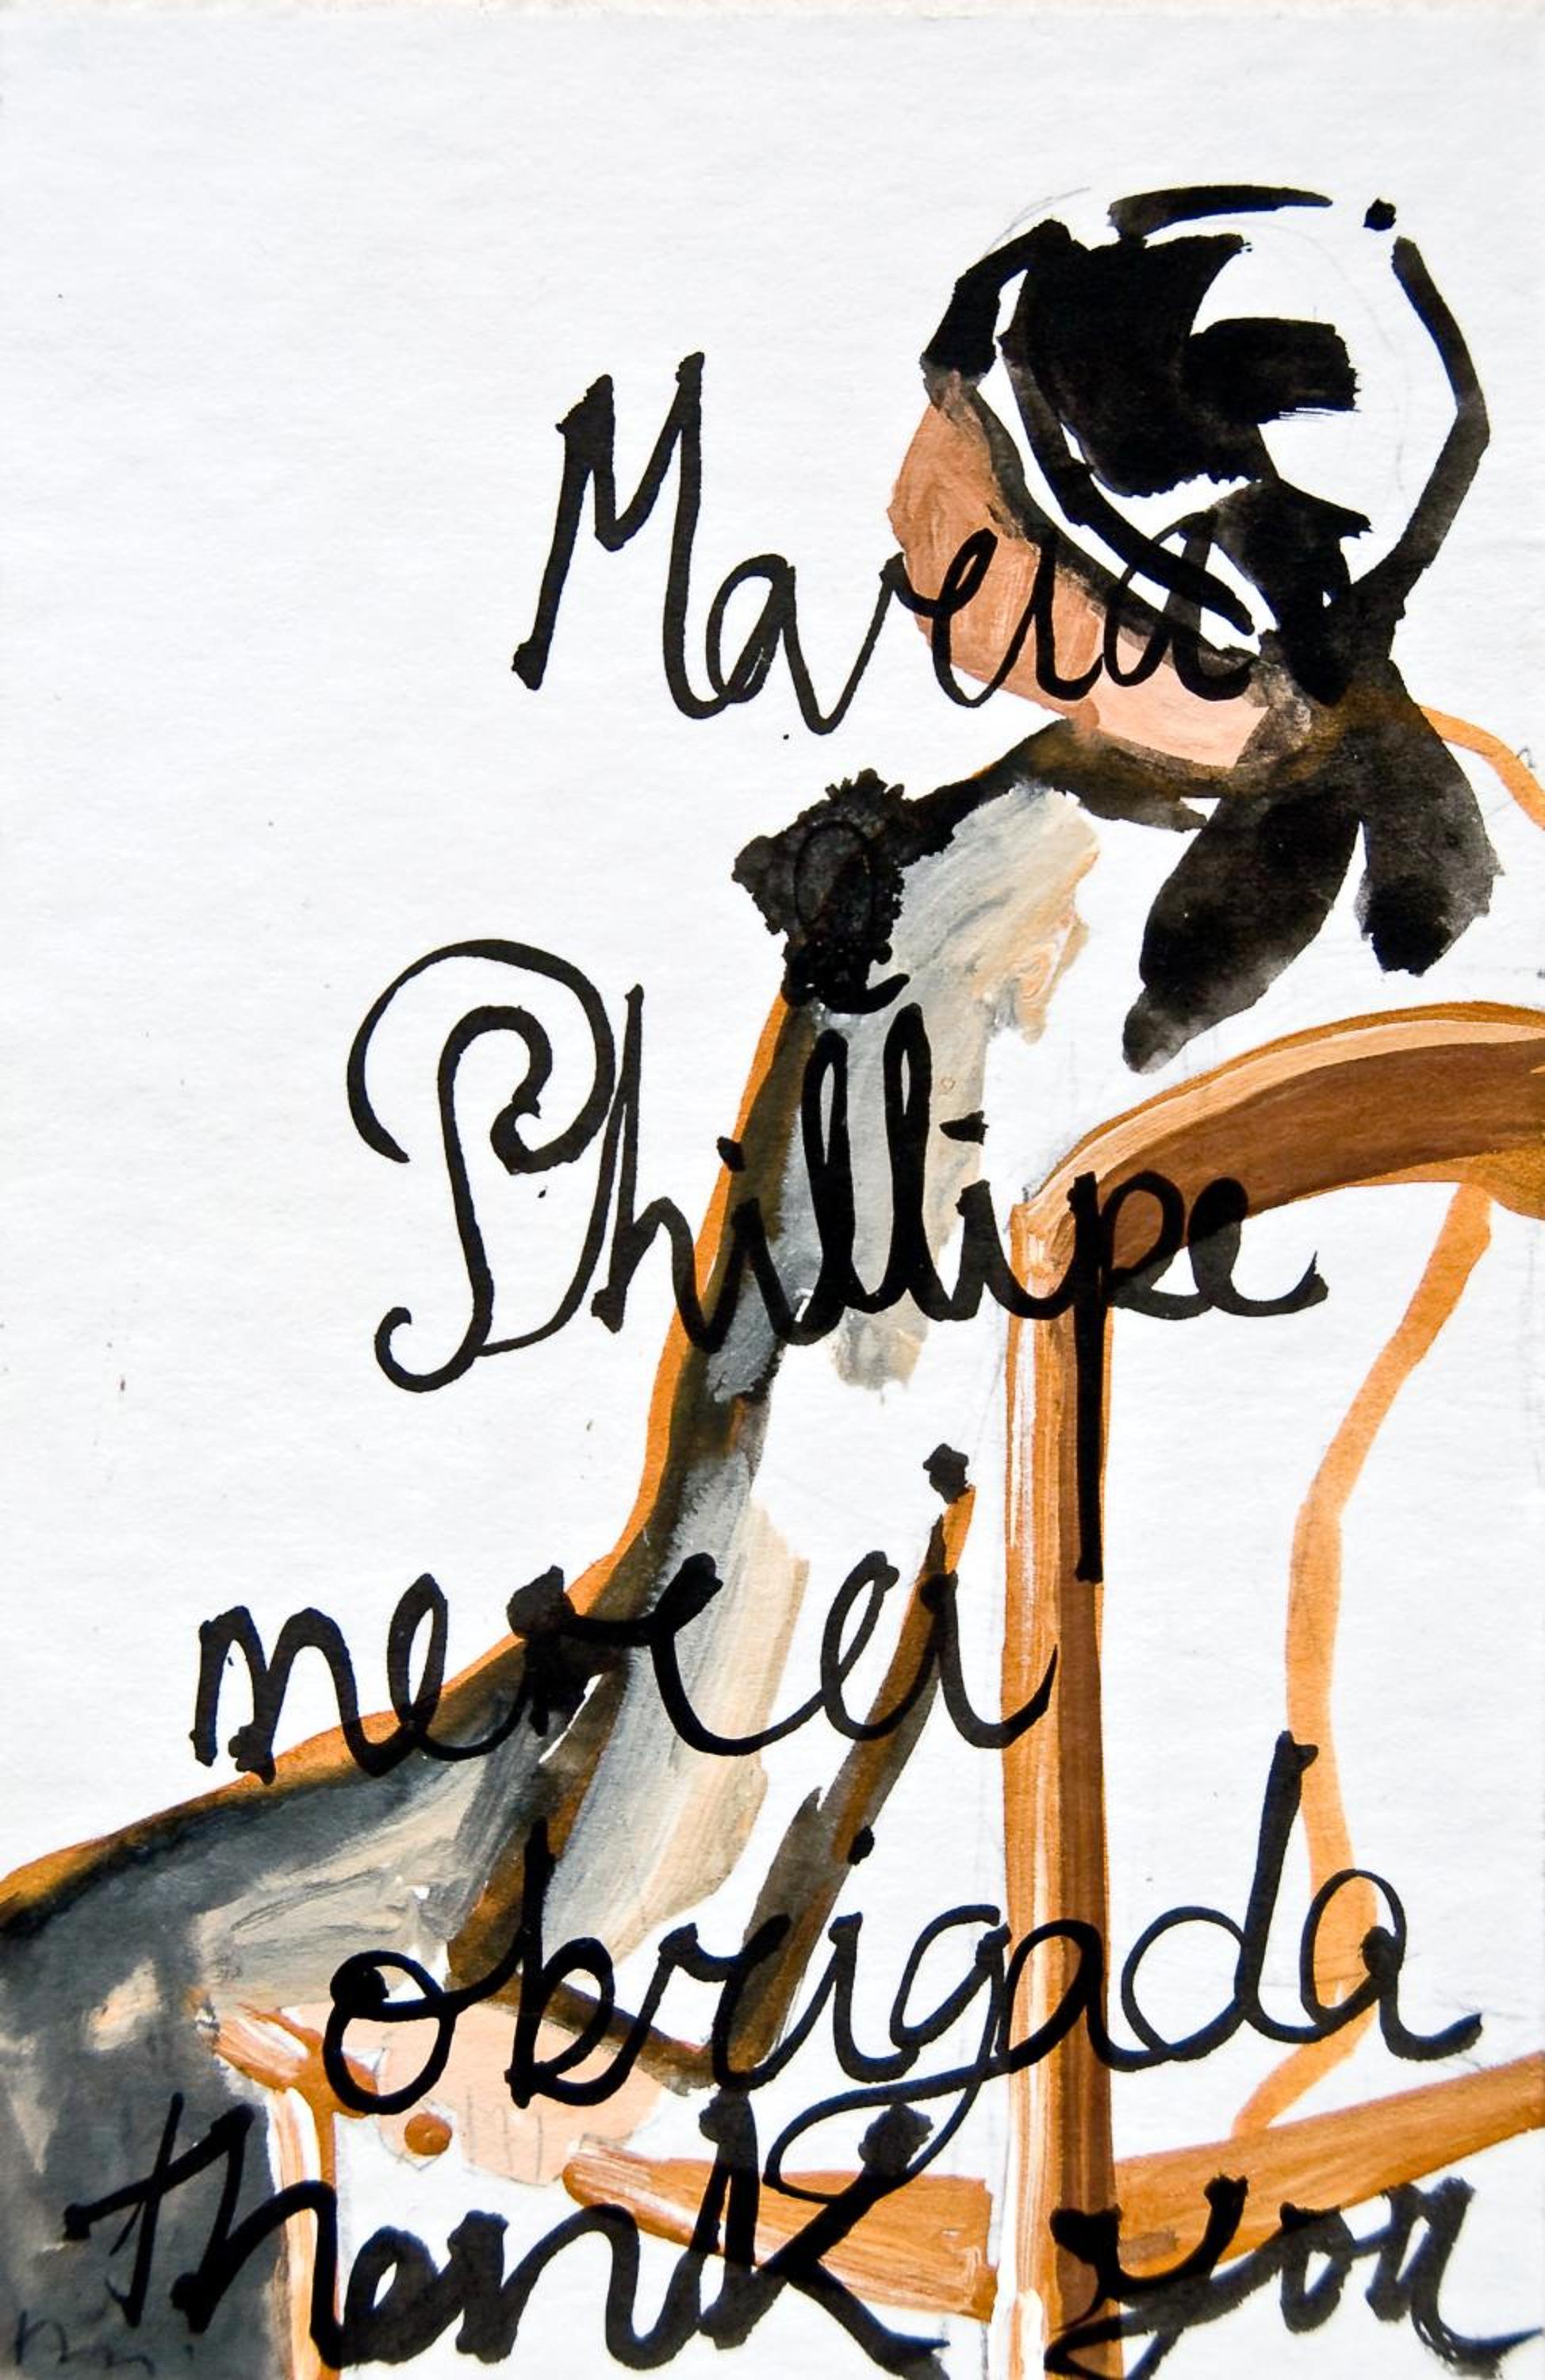 Mareia
Phillipe
merci
obrigada
thank you